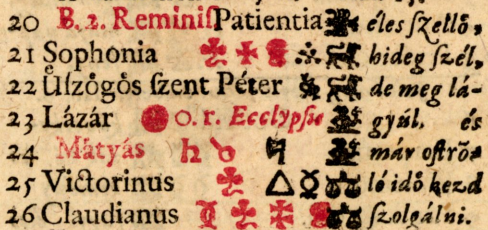 20 B. 2. Reminiſ Patientia éles ſzellő,
21 Sophonia hideg ſzél,
22 Uͤſzoͤgoͤs ſzent Péter de meg lá-
23 Lázár 0. r. Ecclypſis gyúl. és
24 Mátyás ♄ ☍ már oſtro-
25 Victorinus △ ☿ ló idő kezd
26 Claudianus ſzolgálni.